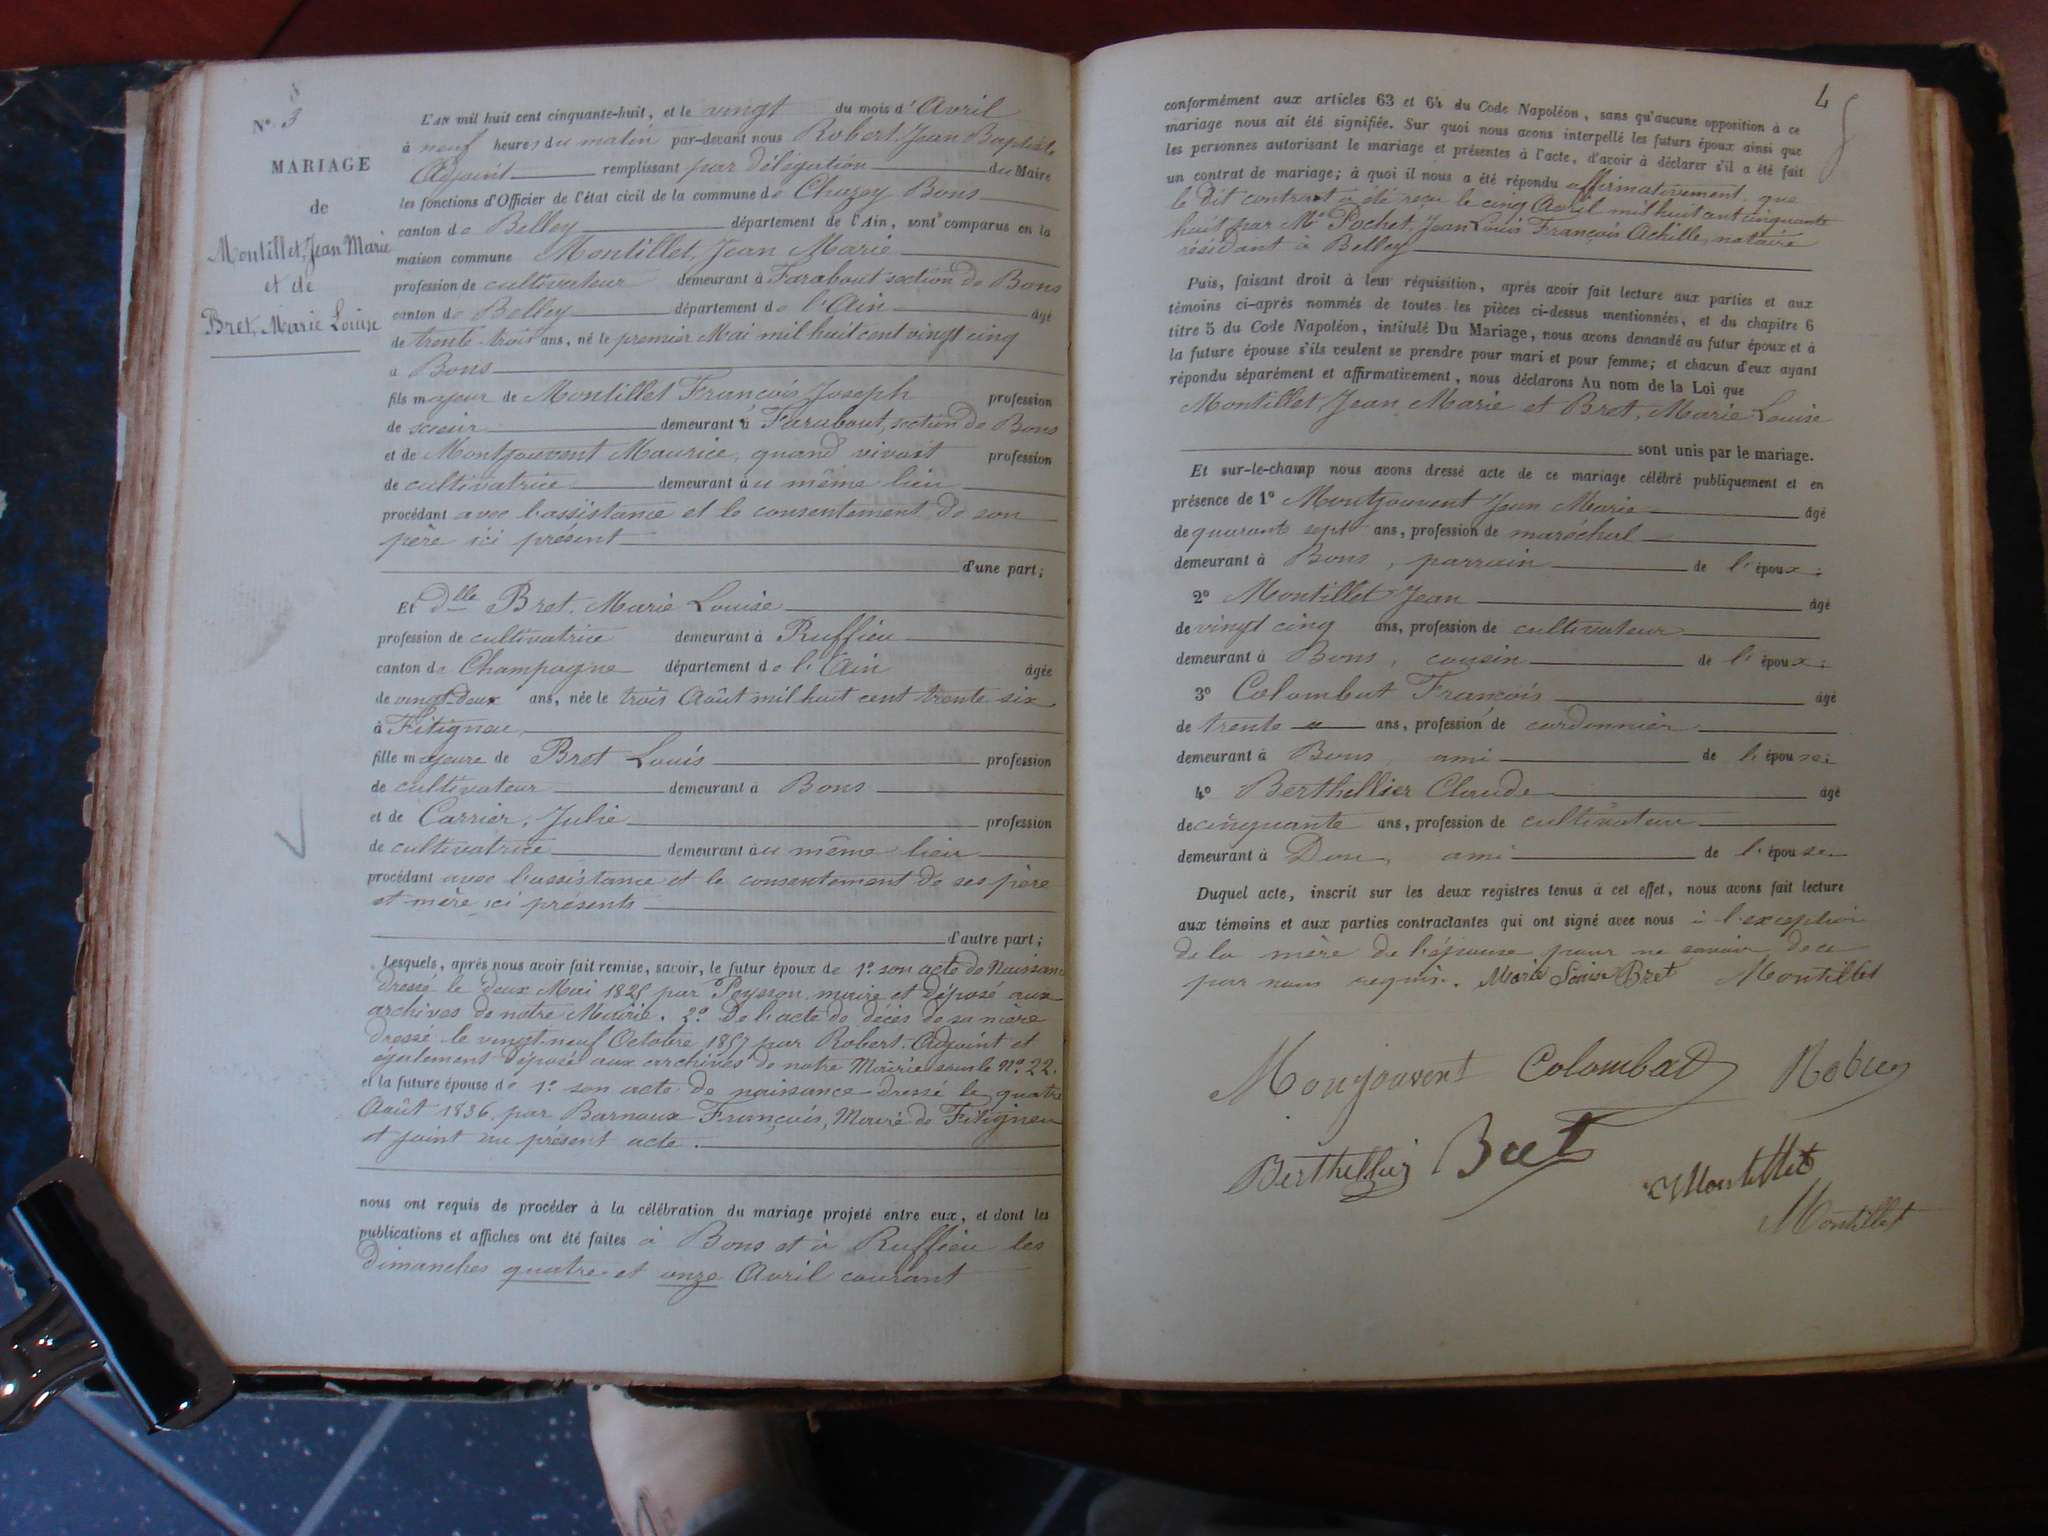 8
Nº 3
MARIAGE
de
Montillet, Jean Marie
et de
Bret, Marie Louise
L'AN mil huit cent cinquante-huit, et le vingt du mois d'Avril
à neuf heures du matin par-devant nous Robert, Jean Baptiste
Adjoint remplissant par délégation du Maire
les fonctions d'Officier de l'état civil de la commune de Chazey Bons
canton de Belley département de l'Ain, sont comparus en la
maison commune Montillet, Jean Marie
profession de cultivateur demeurant à Farabout section de Bons
canton de Belley département de l'Ain âgé
de trente trois ans, né le premier Mai mil huit cent vingt cinq
à Bons
fils majeur de Montillet François Joseph profession
de scieur demeurant à Farabout, section de Bons
et de Montjouvent Maurice, quand vivait profession
de cultivatrice demeurant au même lieu
procédant avec l'assistance et le consentement de son
père ici présent
d'une part;
Et dlle Bret, Marie Louise
profession de cultivatrice demeurant à Ruffieu
canton de Champagne département de l'Ain âgée
de vingt-deux ans, née le trois Août mil huit cent trente six
à Fitigneu,
fille majeure de Bret Louis profession
de cultivateur demeurant à Bons
et de Carrier, Julie profession
de cultivatrice demeurant au même lieu
procédant avec l'assistance et le consentement de ses père
et mère ici présents
d'autre part;
Lesquels, après nous avoir fait remise, savoir, le futur époux de 1º son acte de Naissance
dressé le deux Mai 1825 par Peysson, maire et déposé aux
archives de notre Mairie. 2º De l'acte de décès de sa mère
dressé le vingt-neuf Octobre 1857 par Robert, Adjoint et
également déposé aux archives de notre Mairie sous le Nº 22.
et la future épouse de 1º son acte de naissance dressé le quatre
Août 1836, par Barnaux François, Maire de Fitigneu
et joint au présent acte.
nous ont requis de procéder à la célébration du mariage projeté entre eux, et dont les
publications et affiches ont été faites à Bons et à Ruffieu les
dimanches quatre et onze Avril courant
4
conformément aux articles 63 et 64 du Code Napoléon, sans qu'aucune opposition à ce
mariage nous ait été signifiée. Sur quoi nous avons interpellé les futurs époux ainsi que
les personnes autorisant le mariage et présentes à l'acte, d'avoir à déclarer s'il a été fait
un contrat de mariage; à quoi il nous a été répondu affirmativement, que
le dit contrat a été reçu le cinq Avril mil huit cent cinquante
huit par Me Pochet, Jean Louis François Achille, notaire
résidant à Belley
Puis, faisant droit à leur réquisition, après avoir fait lecture aux parties et aux
témoins ci-après nommés de toutes les pièces ci-dessus mentionnées, et du chapitre 6
titre 5 du Code Napoléon, intitulé Du Mariage, nous avons demandé au futur époux et à
la future épouse s'ils veulent se prendre pour mari et pour femme; et chacun d'eux ayant
répondu séparément et affirmativement, nous déclarons Au nom de la Loi que
Montillet, Jean Marie et Bret, Marie Louise
sont unis par le mariage.
Et sur-le-champ nous avons dressé acte de ce mariage célébré publiquement et en
présence de 1º Montjouvent Jean Marie âgé
de quarante sept ans, profession de maréchal
demeurant à Bons, parrain de l'époux;
2º Montillet Jean âgé
de vingt cinq ans, profession de cultivateur
demeurant à Bons, cousin de l'époux;
3º Colombat François âgé
de trente ans, profession de cordonnier
demeurant à Bons, ami de l'épouse;
4º Berthellier Claude âgé
de cinquante ans, profession de cultivateur
demeurant à Don, ami de l'épouse
Duquel acte, inscrit sur les deux registres tenus à cet effet, nous avons fait lecture
aux témoins et aux parties contractantes qui ont signé avec nous à l'exception
de la mère de l'épouse pour ne savoir de ce
par nous requis. Marie Louise Bret Montillet
Monjouvent Colombat
Berthellier Bret Montillet
Montillet